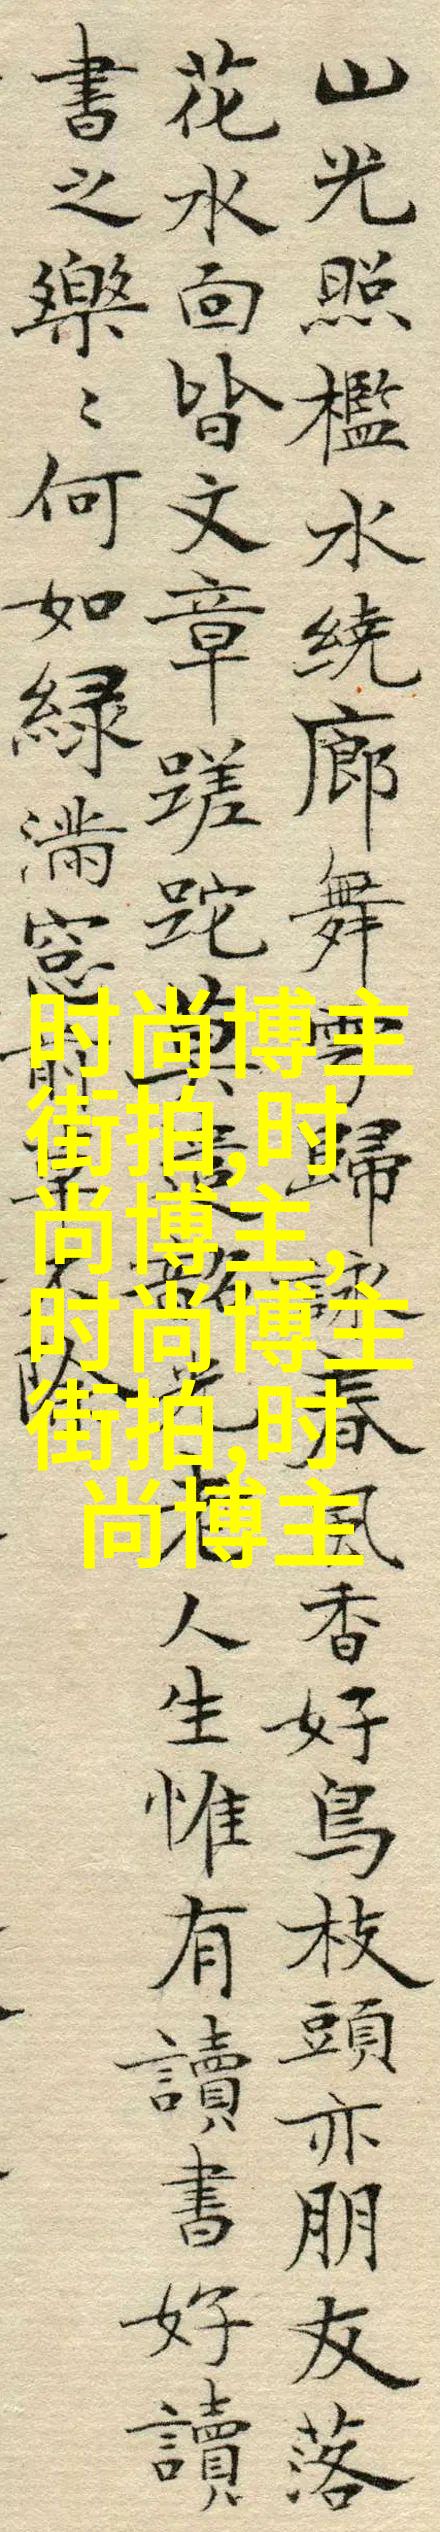 山光照檻水繞廊舞雩歸詠春風香好鳥枝頭亦朋友落
花水面皆文章蹉跎莫遣韶光老人生惟有讀書好讀
書之樂〻何如綠滿窓前草不除
时尚博主
街拍,时
尚博主,
时尚博主
街拍,时
尚博主